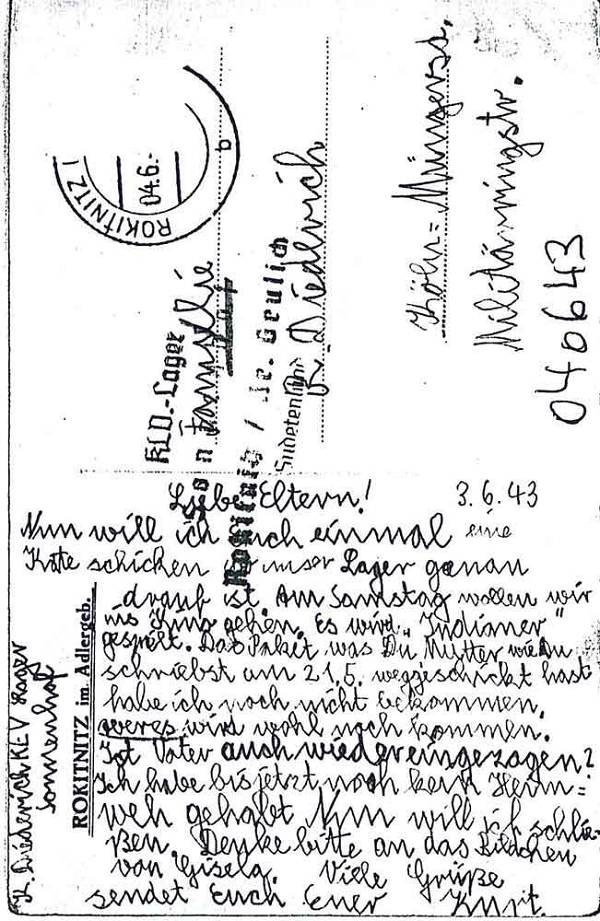 Liebe Eltern! 3.6.43
Nun will ich euch einmal eine
Kate schicken wo unser Lager genau
drauf ist. Am Samstag wollen wir
ins Kino gehen. Es wird „Indianer"
gespielt. Das Paket was Du Mutter wie Du
schriebst am 21.5. weggeschickt hast
habe ich noch nicht bekommen,
wird wohl noch kommen.
Ist Vater auch wieder eingezogen?
Ich habe bis jetzt noch kein Heim=
weh gehabt. Nun will ich schlie-
ßen. Denke bitte an das Bildchen
von Gisela. Viele Grüße
sendet Euch Euer Kurt
K. Diederich KLV Lager
Sonnenhof
ROKITNITZ im Adlergeb.
ROKITNITZ 1
04.6.-
b
KLV.-Lager
Rokitnitz / Ad.
Sudetenland
Familie
K. Diederich
Köln= Müngersd.
Militärringstr.
040643